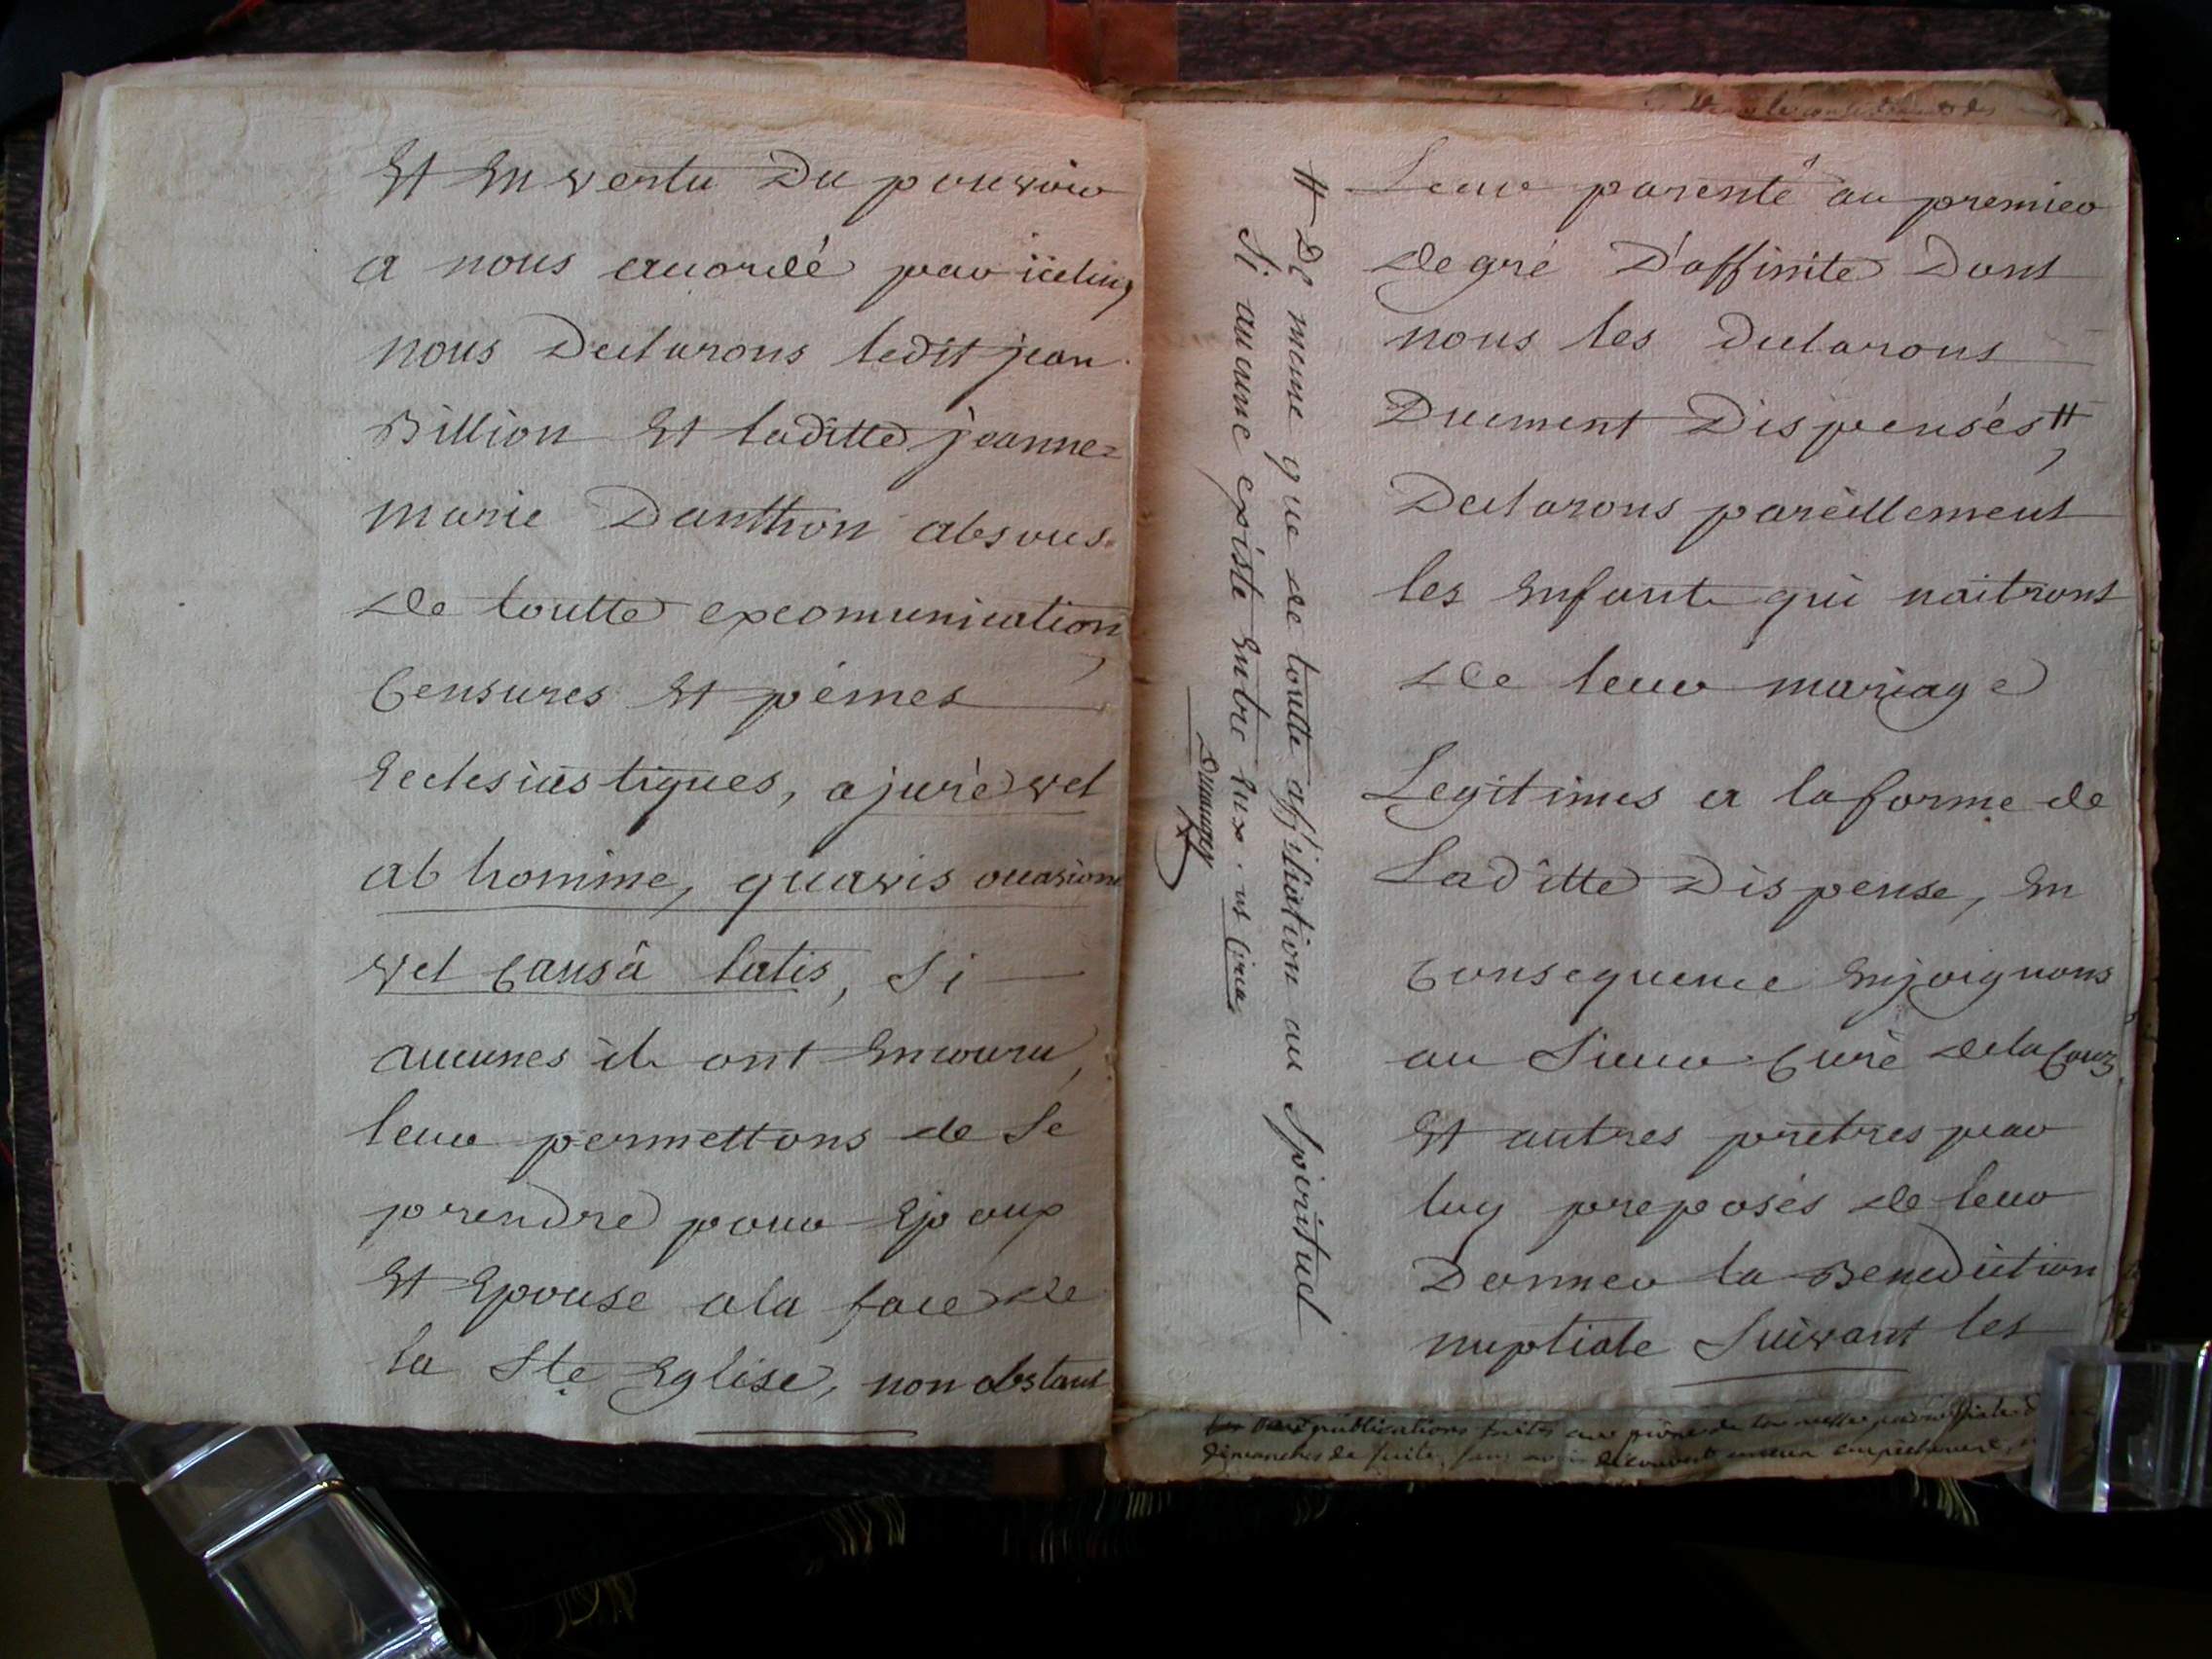 Et En vertu Du pouvoir
a nous accordé par iceluy
nous Declarons ledit jean
Billion Et laditte jeanne=
marie Danthon absous
de toutte excomunication,
Censures Et peines
Ecclesiastiques, a jure vel
ab homine, quavis occasione
vel Causâ latis, Si
aucunes ils ont Encouru,
leur permettons de Se
prendre pour Epoux
Et Epouse a la face de
la Ste Eglise, non obstant
Leur parenté au premier
degré D'affinité Dont
nous les Declarons
Duement Dispensés #,
Declarons pareillement
les Enfants qui naitront
de leur mariage
Legitimes a la forme de
Laditte Dispense, En
Consequence Enjoignons
au Sieur Curé de la
Et autres pretres par
luy preposés de leur
Donner la Benediction
nuptiale Suivant les
# De meme que de toutte affiliation au Spirituel
Si aucune existe Entre Eux.
publications faites au prône de la messe
dimanches de suite, sans avoir découvert aucun empêchement,